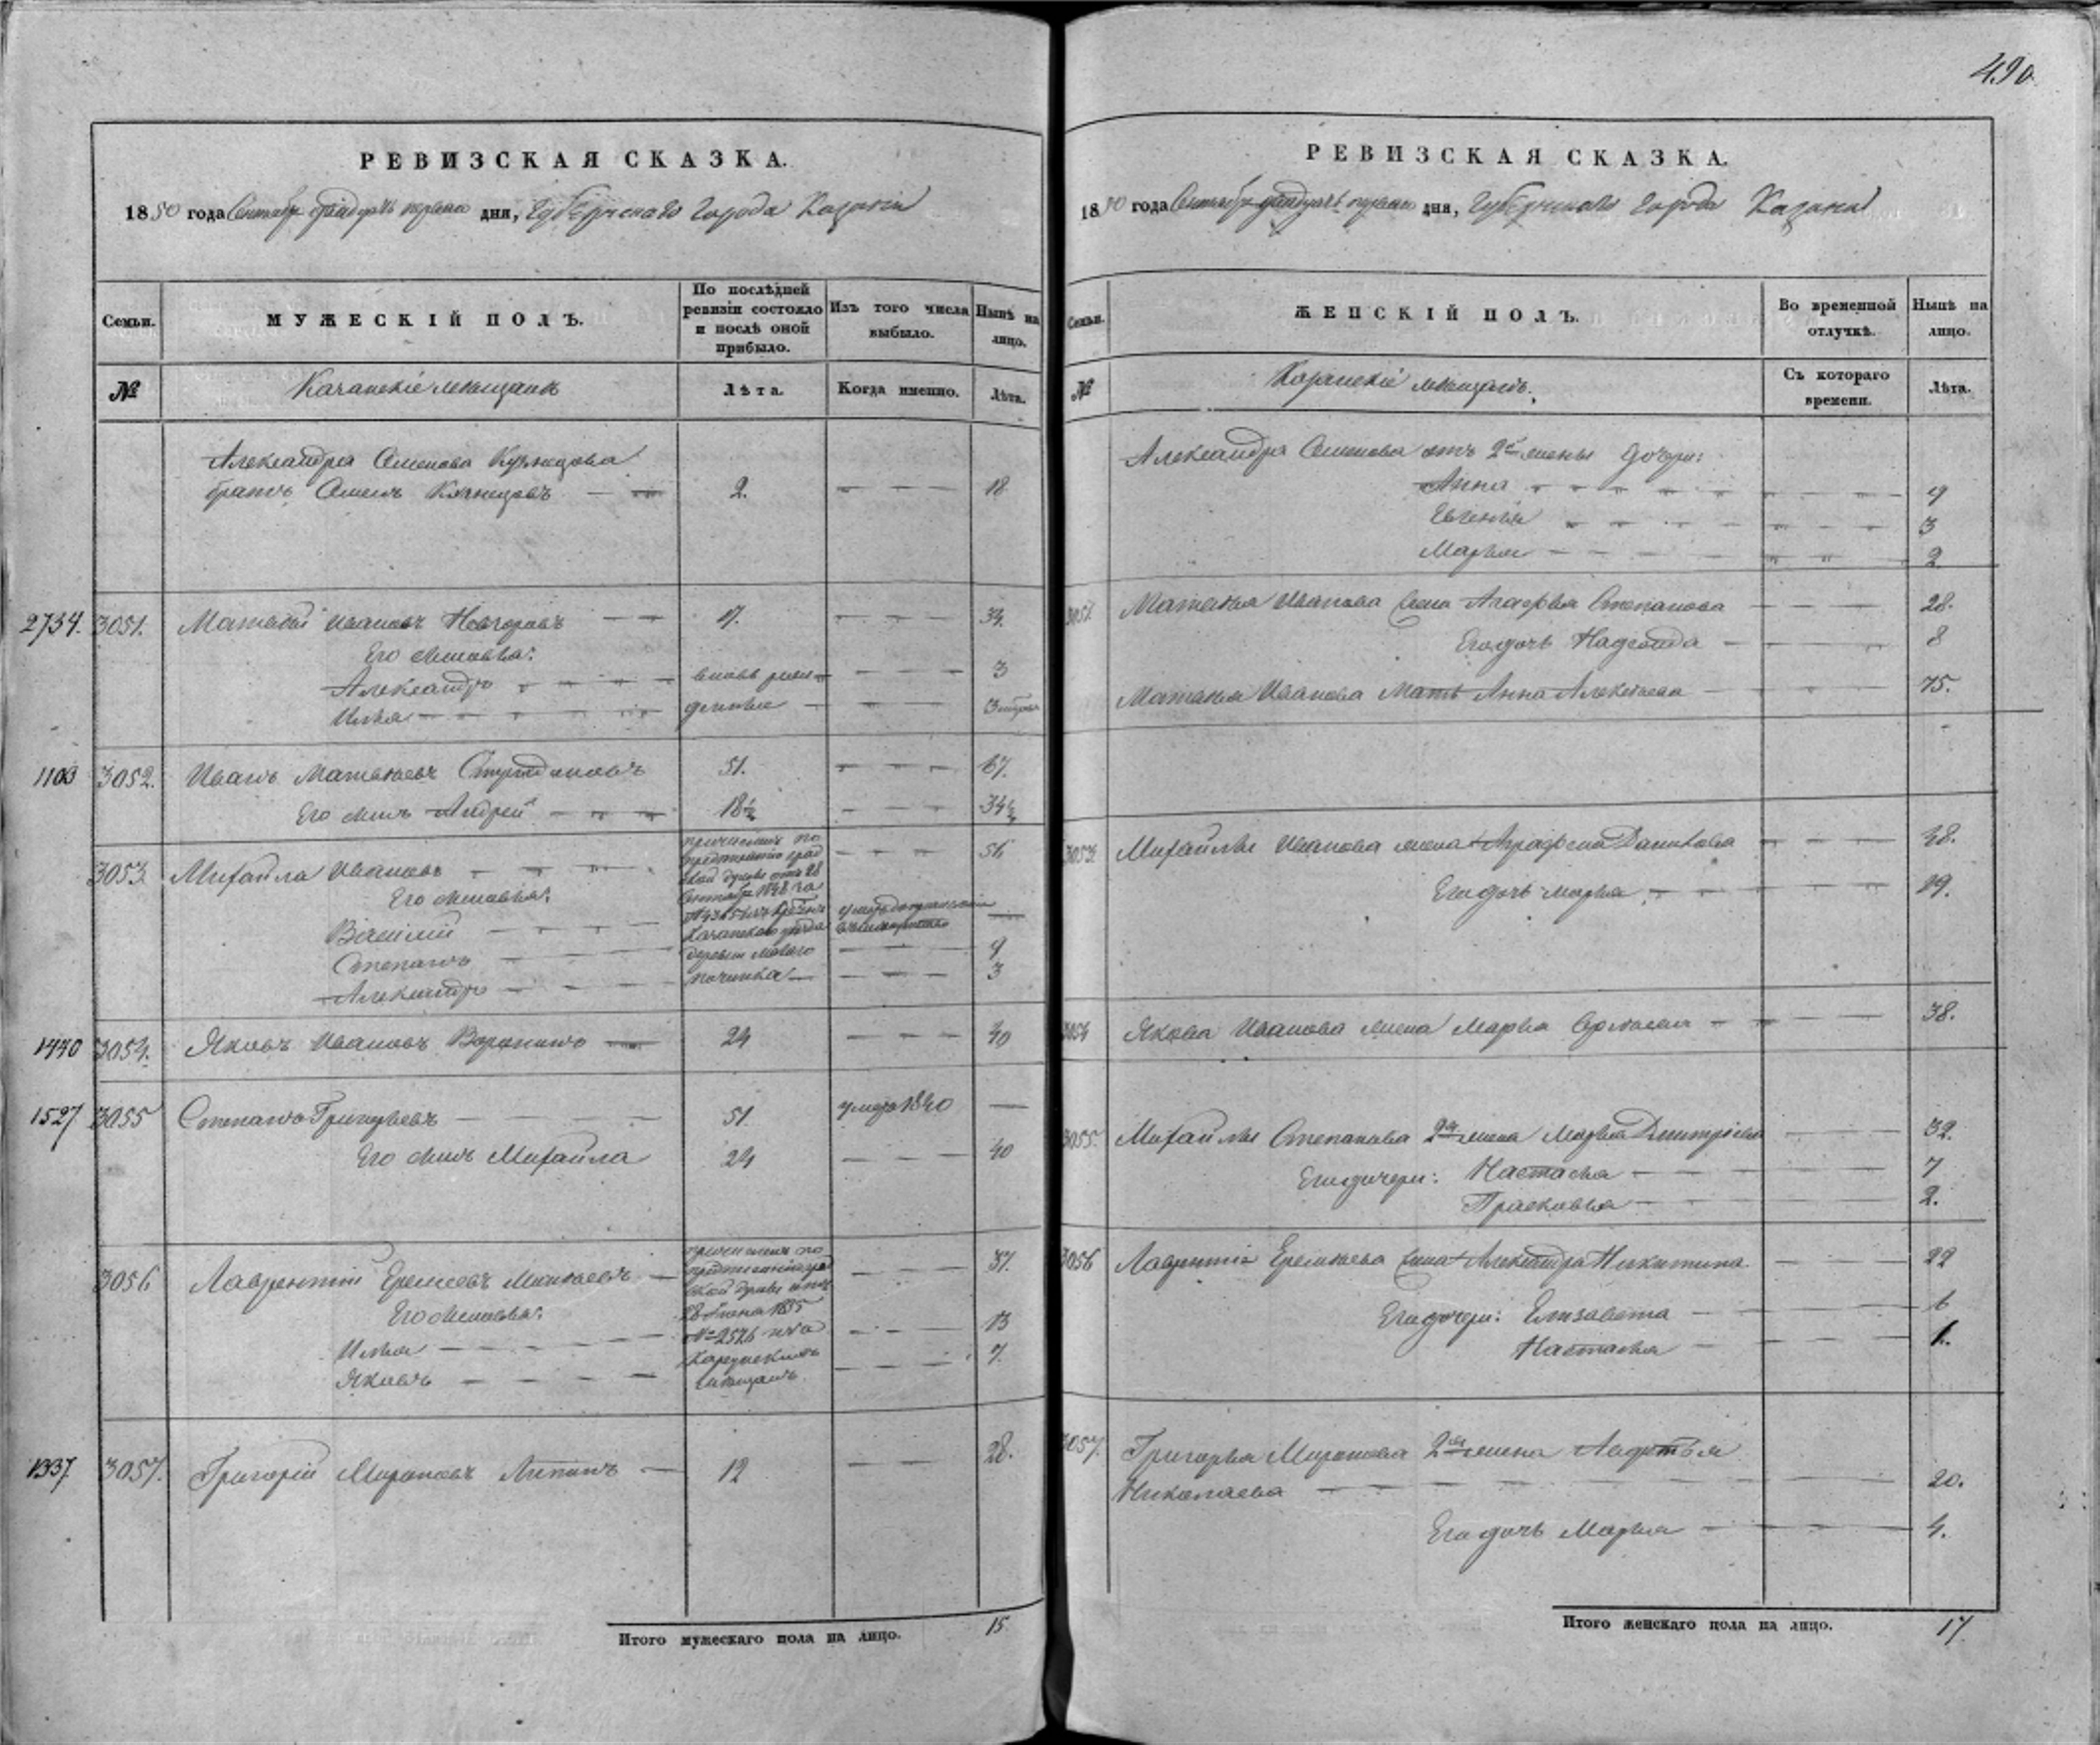 490.
РЕВИЗСКАЯ СКАЗКА.
1850 года Сентября двадцать перваго дня, Губернскаго Города Казани
Семьи. МУЖЕСКІЙ ПОЛЪ. По послѣдней ревизіи состояло и послѣ оной прибыло. Изъ того числа выбыло. Нынѣ на лицо.
№ Казанскіе мещане Лѣта. Когда именно. Лѣта.
Александра Семенова Кузнецова
братъ Семенъ Кузнецовъ 2. 18
2734. 3051. Матвей Ивановъ 17. 34.
Его сыновья:
Александръ вновь рож 3
Илья денные 3
1103 3052. Иванъ Матвеевъ 51. 67.
Его сынъ Андрей 18½ 34½
3053 Михайла Ивановъ 56
причисленъ по
предписанію град
ской думы отъ 28
Сентября 1848 га
Его сыновья:
Василий умер
Казанскаго уезда
Степанъ деревни 9
Александръ починка 3
1440 3054. Яковъ Ивановъ Воронинъ 24 40
1527 3055 Степанъ Григорьевъ 51 умеръ 1840
Его сынъ Михайла 24 40
3056 Лаврентий Еремеевъ 37.
причисленъ по
предписанію гра
ской думы отъ
Его сыновья:
№ 2576 изъ
Илья 13
Яковъ мещанъ 7.
1337 3057. Григорій Мироновъ Липинъ 12 28.
Итого мужескаго пола на лицо. 15
РЕВИЗСКАЯ СКАЗКА.
1850 года Сентября двадцать перваго дня, Губернскаго Города Казани
Семьи. ЖЕНСКІЙ ПОЛЪ. Во временной отлучкѣ. Нынѣ на лицо.
№ Казанскіе мещане. Съ котораго времени. Лѣта.
Александра Семенова отъ 2й жены дочери:
Анна 9
Евгения 3
Марья 2
3051. Матвея Иванова жена Агафья Степанова 28.
Его дочь Надежда 8
Матвея Иванова Мать Анна Алексеева 75.
3053 Михайлы Иванова жена Аграфена Данилова 48.
Его дочь Марья 19.
3054 Якова Иванова жена Марья 38.
3055. Михайлы Степанова 2я жена Марья Дмитріева 32.
Его дочери: Настасья 7
Прасковья 2.
3056 Лаврентія Еремеева жена Александра Никитина 22
Его дочери: Елизавета 6
Настасья 1.
3057. Григорья Миронова 2я жена Авдотья
Николаева 20.
Его дочь Марья 4.
Итого женскаго пола на лицо. 17.